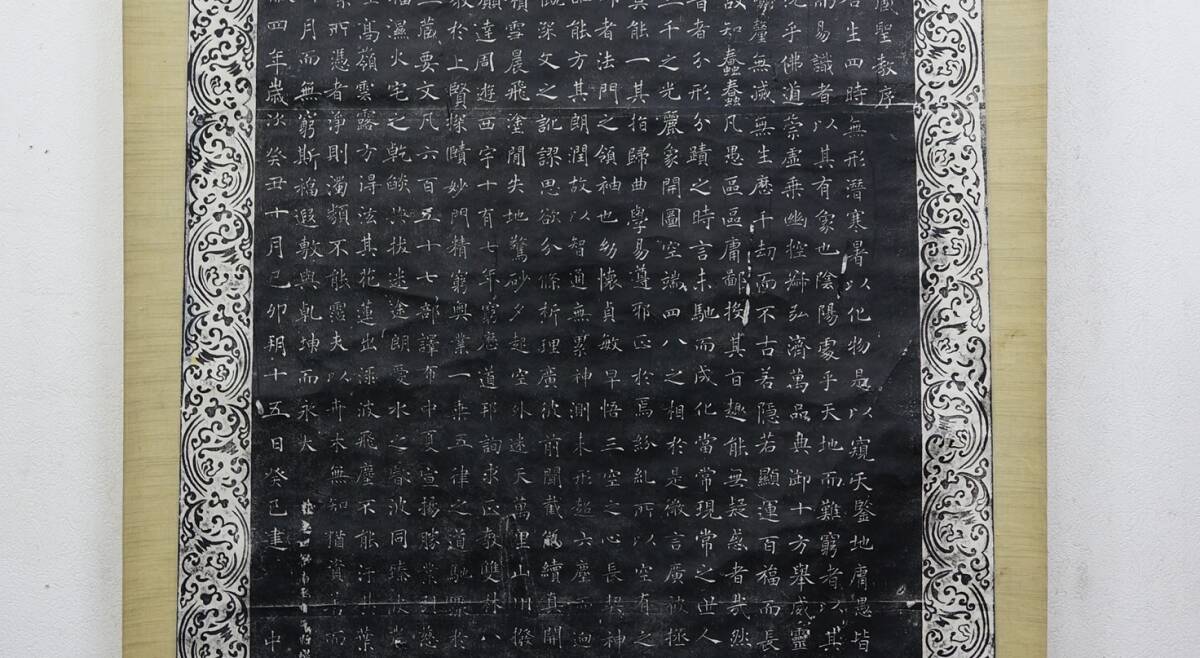 聖教序
生四時無形潛寒暑以化物是以窺天鑒地庸愚皆
而易識者以其有象也陰陽處乎天地而難窮者以其
況乎佛道崇虛乘幽控寂弘濟萬品典御十方舉威靈
豪釐無滅無生歷千劫而不古若隱若顯運百福而長
故知蠢蠢凡愚區區庸鄙投其旨趣能無疑惑者哉然
者分形分蹟之時言未馳而成化當常現常之世人
三千之光麗象開圖空端四八之相於是微言廣被拯
其能一其指歸曲學易遵邪正於焉紛糺所以空有之
者法門之領袖也幼懷貞敏早悟三空之心長契神
品能方其朗潤故以智通無累神測未形超六塵而迥
慨深文之訛謬思欲分條析理廣彼前聞截偽續真開
積雪晨飛塗間失地驚砂夕起空外迷天萬里山川撥
願達周遊西宇十有七年窮歷道邦詢求正教雙林八
教於上賢探賾妙門精窮奧業一乘五律之道馳驟於
三藏要文凡六百五十七部譯布中夏宣揚勝業引慈
濕火宅之乾燄共拔迷途朗愛水之昏波同臻彼岸
生高嶺雲露方得泫其花蓮出淥波飛塵不能汙其葉
所憑者淨則濁類不能霑夫以卉木無知猶資善而
月而無窮斯福遐敷與乾坤而永大
四年歲次癸丑十月己卯朔十五日癸巳建 中